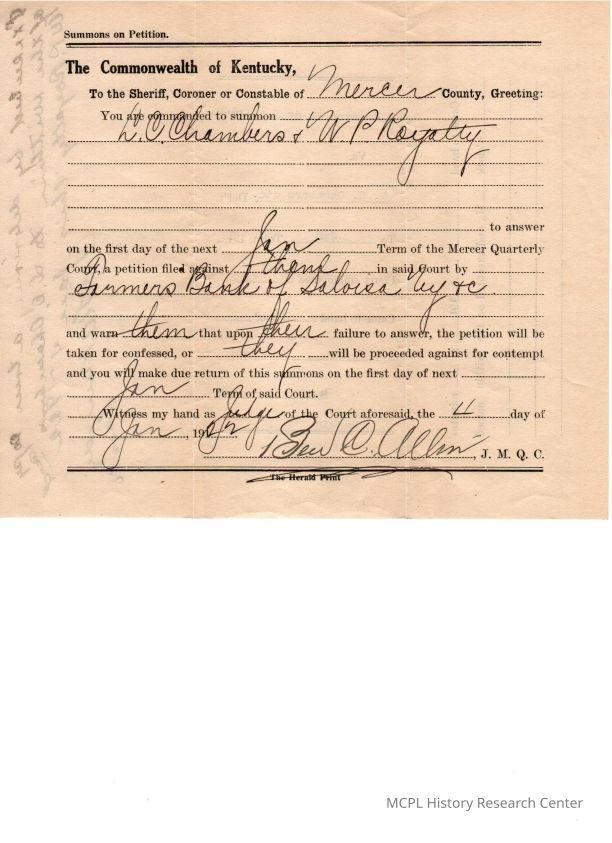 Summons on Petition.
The Commonwealth of Kentucky,
To the Sheriff, Coroner or Constable of Mercer County, Greeting:
You are commanded to summon
L. C. Chambers & W. P Royalty
to answer
on the first day of the next Jan Term of the Mercer Quarterly
Court, a petition filed against them in said Court by
Farmers Bank of Salvisa Ky &c
and warn them that upon their failure to answer, the petition will be
taken for confessed, or they will be proceeded against for contempt
and you will make due return of this summons on the first day of next
Jan Term of said Court.
Witness my hand as Judge of the Court aforesaid, the 4 day of
Jan, 1912
Ben C. Allin, J. M. Q. C.
The Herald Print
MCPL History Research Center